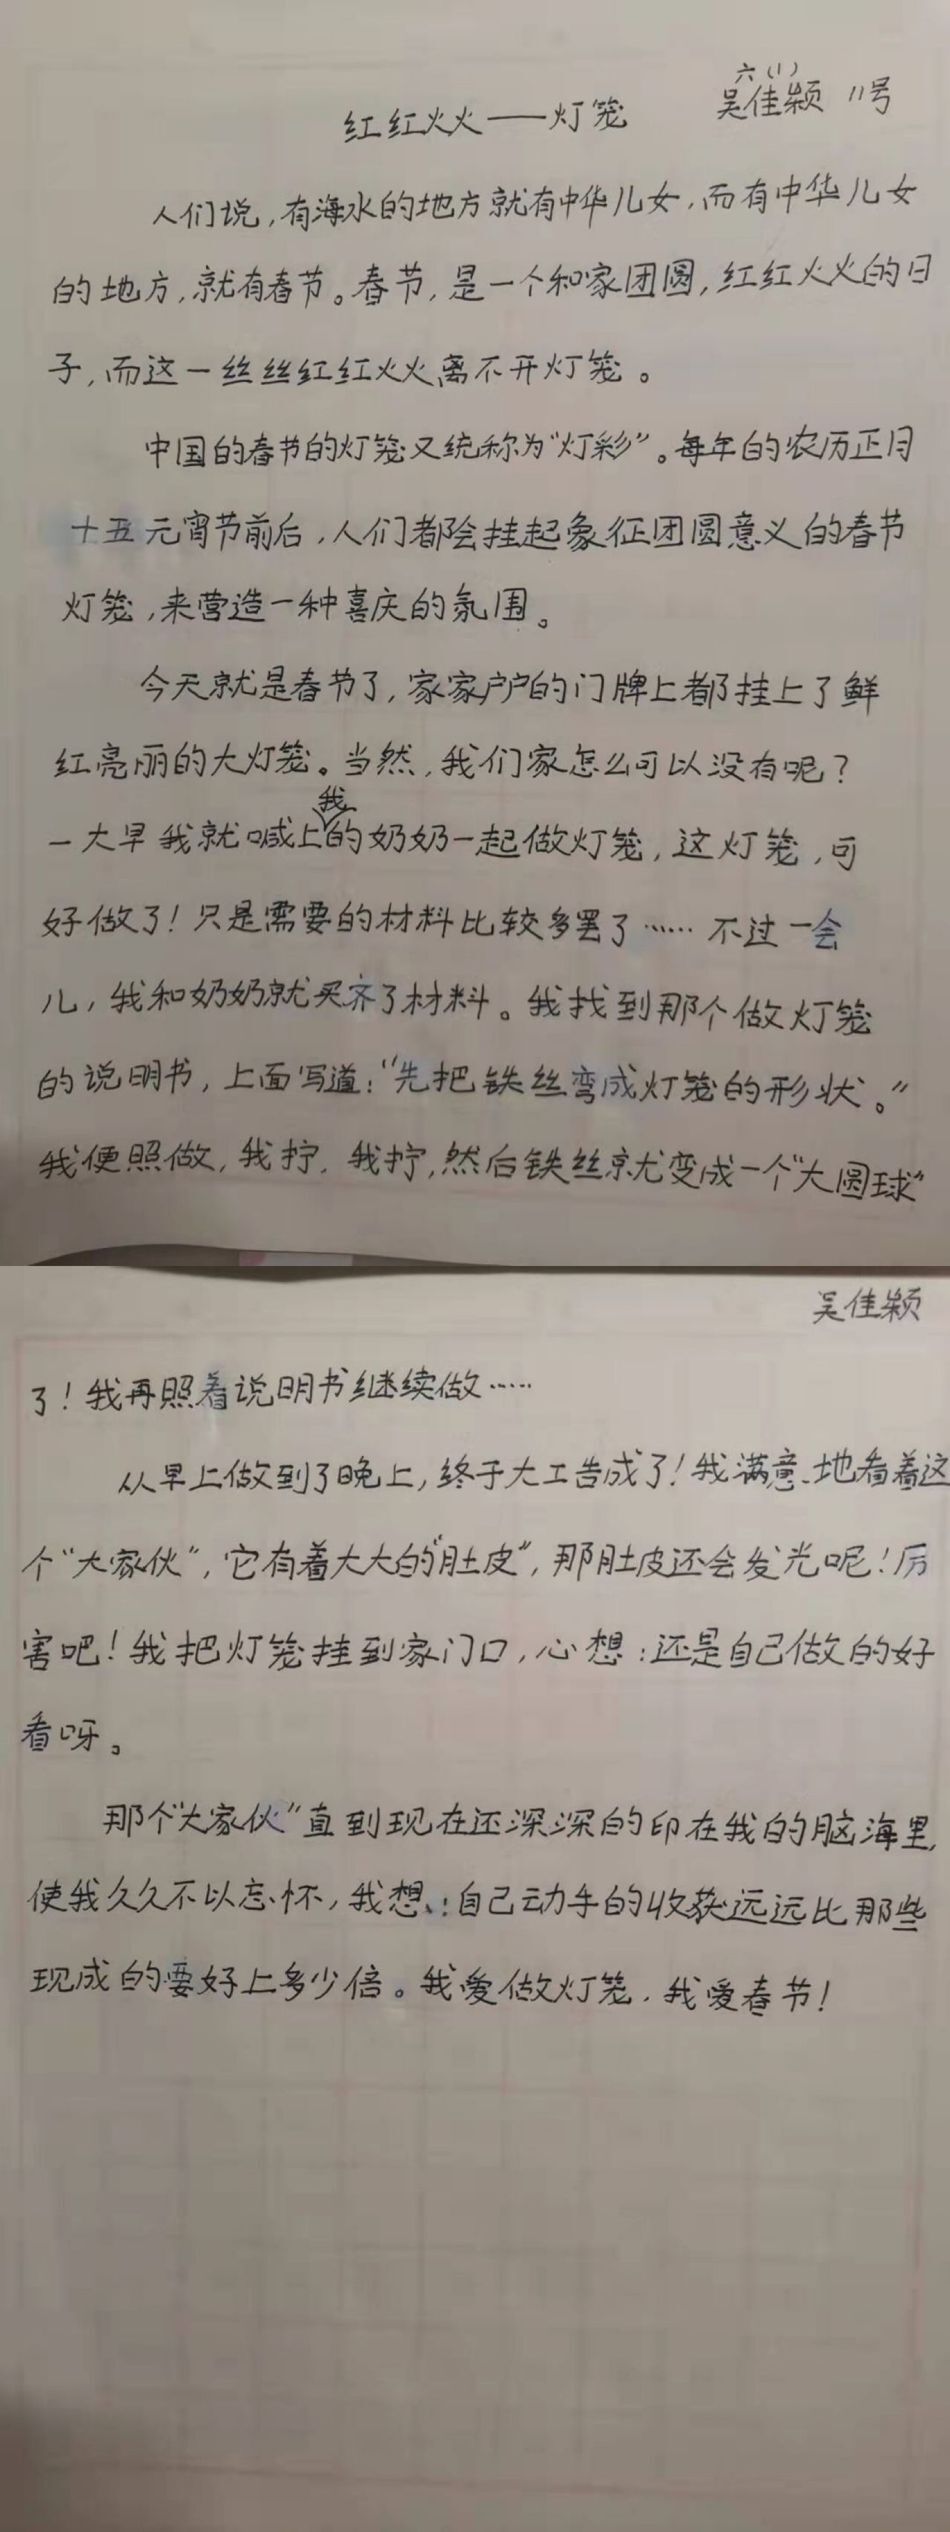 六(1)
红红火火——灯笼 吴佳颖 11号
人们说，有海水的地方就有中华儿女，而有中华儿女
的地方，就有春节。春节，是一个和家团圆，红红火火的日
子，而这一丝丝红红火火离不开灯笼。
中国的春节的灯笼又统称为“灯彩”。每年的农历正月
十五元宵节前后，人们都会挂起象征团圆意义的春节
灯笼，来营造一种喜庆的氛围。
今天就是春节了，家家户户的门牌上都挂上了鲜
红亮丽的大灯笼。当然，我们家怎么可以没有呢？
一大早我就喊上我的奶奶一起做灯笼，这灯笼，可
好做了！只是需要的材料比较多罢了……不过一会
儿，我和奶奶就买齐了材料。我找到那个做灯笼
的说明书，上面写道：“先把铁丝弯成灯笼的形状。”
我便照做，我拧，我拧，然后铁丝就变成一个“大圆球”
吴佳颖
了！我再照着说明书继续做……
从早上做到了晚上，终于大工告成了！我满意地看着这
个“大家伙”，它有着大大的“肚皮”，那肚皮还会发光呢！厉
害吧！我把灯笼挂到家门口，心想：还是自己做的好
看呀。
那个“大家伙”直到现在还深深的印在我的脑海里，
使我久久不以忘怀，我想：自己动手的收获远远比那些
现成的要好上多少倍。我爱做灯笼，我爱春节！